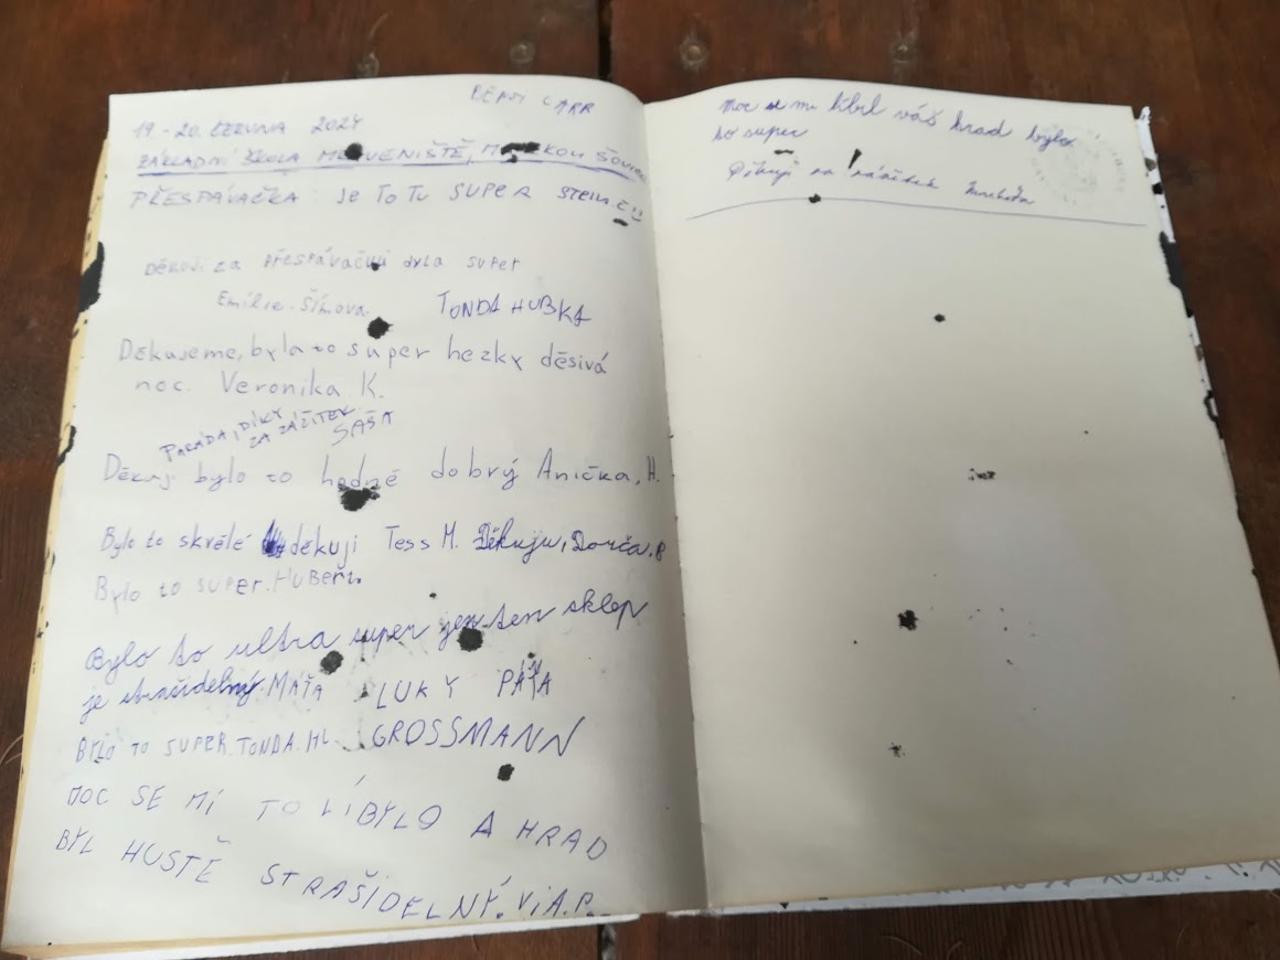 BENY CARR
19-20. ČERVNA 2024
ZÁKLADNÍ ŠKOLA
PŘESPÁVAČKA: JE TO TU SUPER
DĚKUJI ZA PŘESPÁVAČKU byla SUPER
Emílie Šímova TONDA HUBKA
Děkujeme, bylа to super hezky děsivá
noc. Veronika K.
PARÁDA, DÍKY
ZA ZÁŽITEK
SAŠA
Děkuji bylo to hodně dobrý Anička, H.
Bylo to skvělé děkuji Tess M. Děkuju, Dorča.B
Bylo to super. HUBERT.
Bylo to ultra super jen ten sklep
je strašidelný. MÁŤA LUKY PÁŤA
BYLO TO SUPER. TONDA. HL. GROSSMANN
MOC SE MI TO LÍBYLO A HRAD
BYL HUSTĚ STRAŠIDELNÝ. ViA.P.
moc se mi líbil váš hrad bylo
to super
Děkuji za zážitek